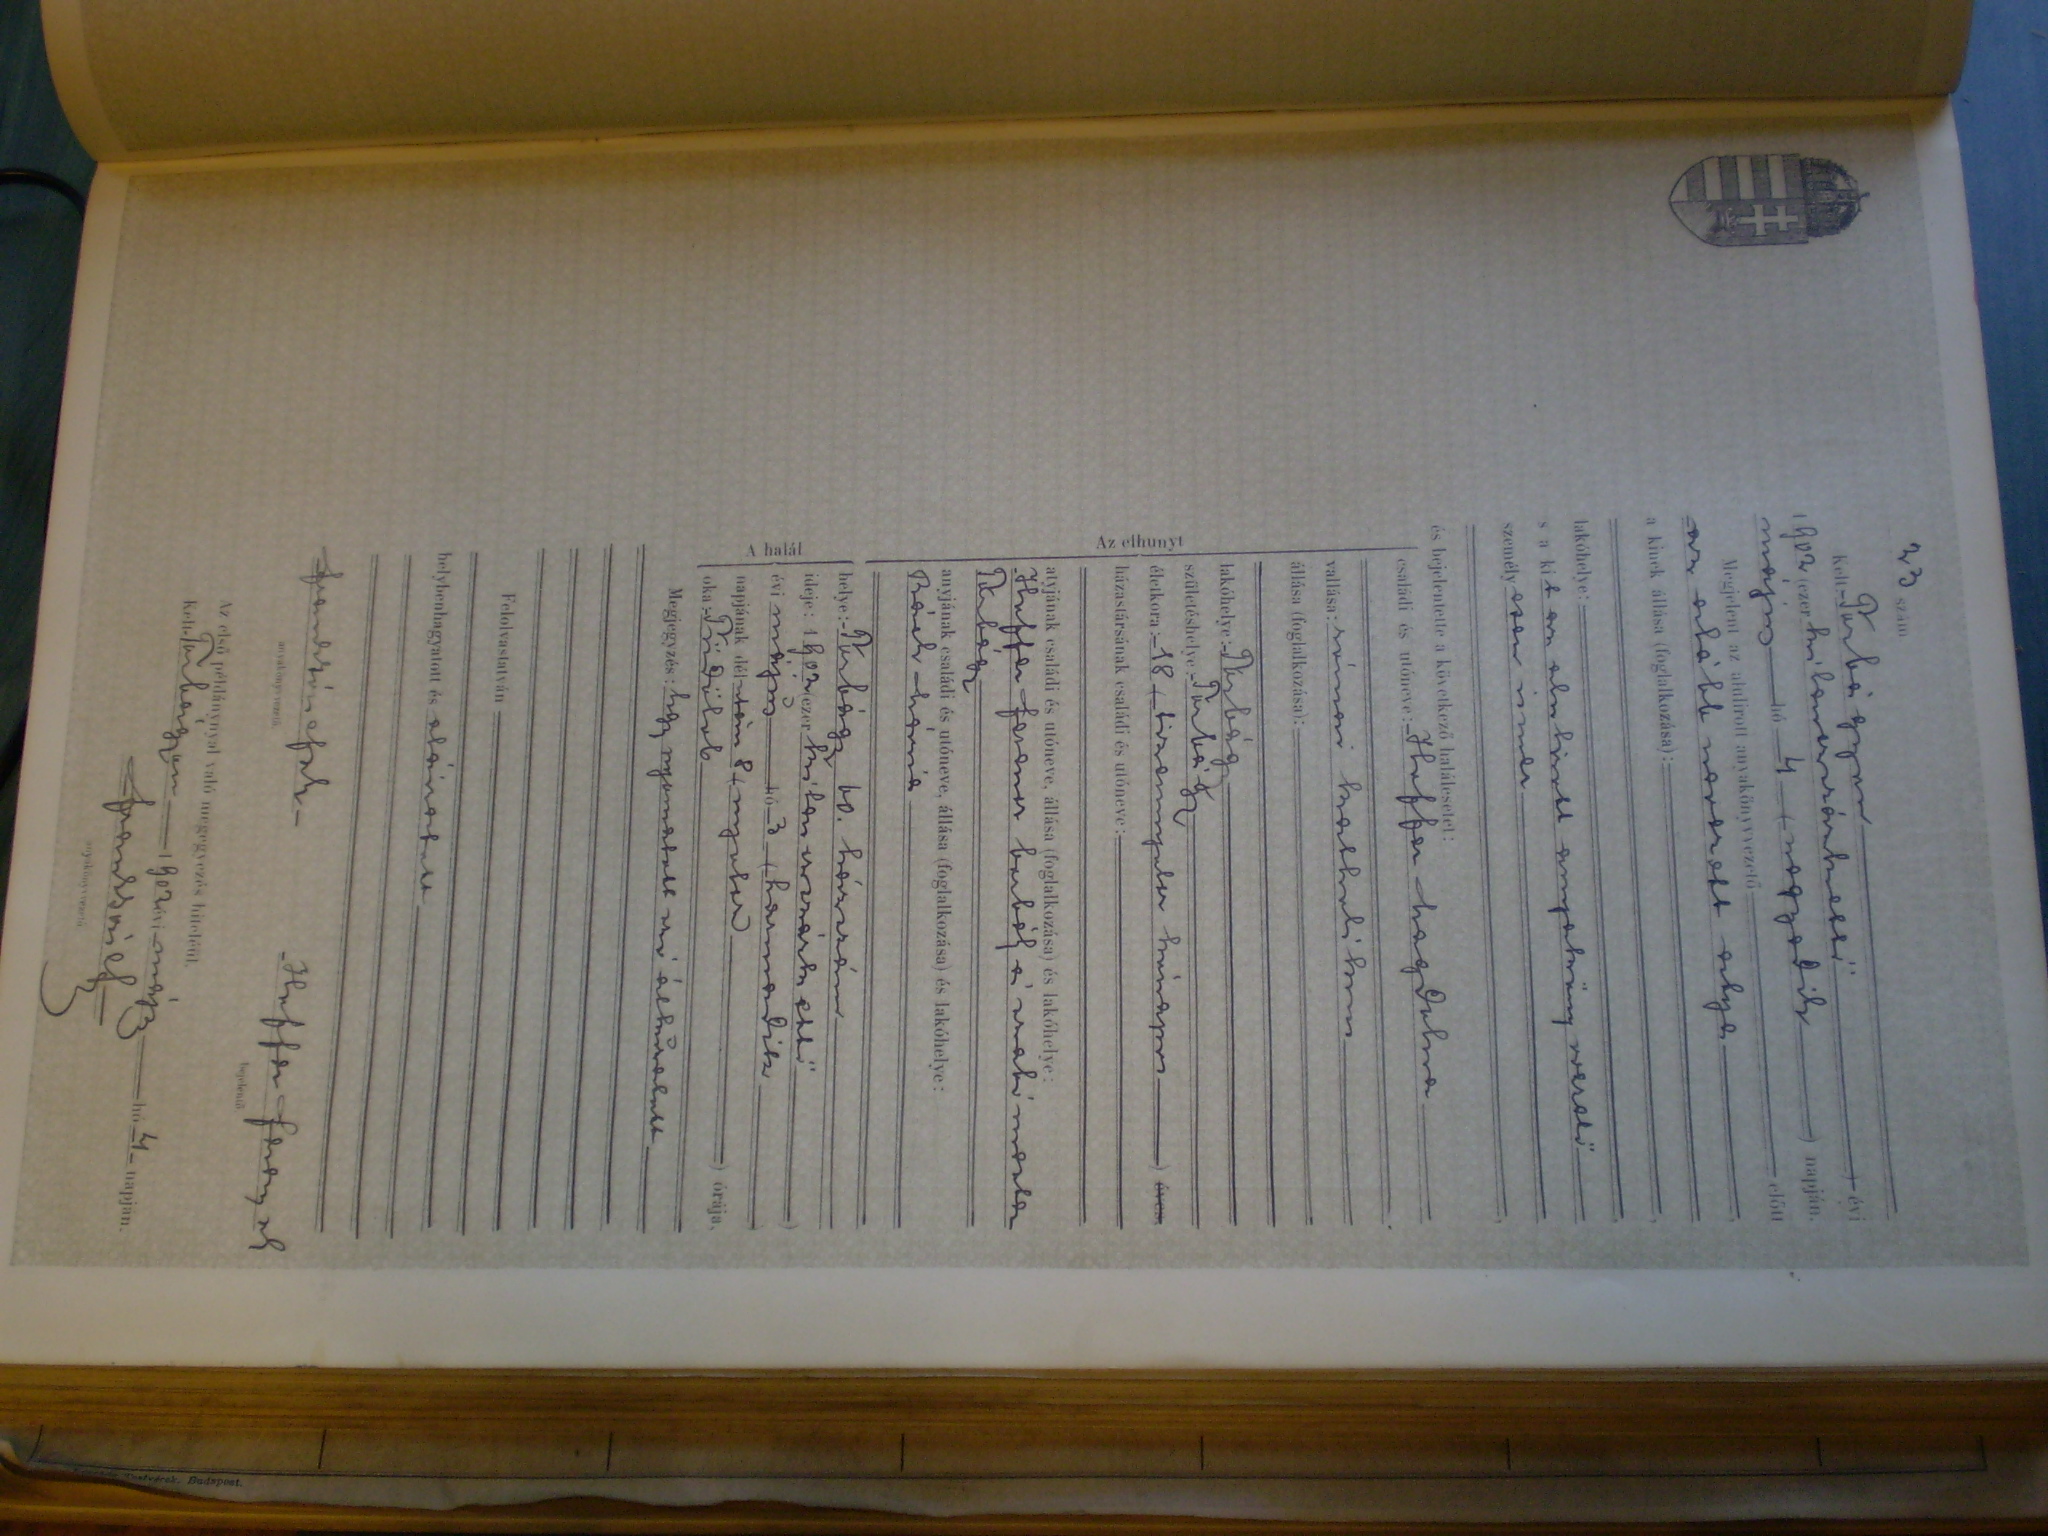 23 szám
Kelt Torbágyon évi
1902 (ezer kilencszázkettő
május hó 4 (negyedik) napján.
Megjelent az alulirott anyakönyvvezető előtt
az alább nevezett atya
a kinek állása (foglalkozása):
lakóhelye:
s a kit az alulirott anyakönyvvezető
személyesen ismer
és bejelentette a következő halálesetet:
Az elhunyt
családi és utóneve: Huffer Magdolna
vallása: római katholikus
állása (foglalkozása):
lakóhelye: Torbágy
születéshelye: Torbágy
életkora: 18 (tizennyolcz hónapos) éves
házastársának családi és utóneve:
atyjának családi és utóneve, állása (foglalkozása) és lakóhelye:
Huffer Ferencz borbély és szabó mester
Torbágy
anyjának családi és utóneve, állása (foglalkozása) és lakóhelye:
Mária
A halál
helye: Torbágy 10. házszám
ideje: 1902 (ezer kilenczszázkettő
évi május hó 3 (harmadik)
napjának délután 8 (nyolcz) órája,
oka: Tüdőlob
Megjegyzés: hogy nyomatott szó áthúzatott
Felolvastatván
helybenhagyatott és aláiratott
anyakönyvvezető
Huffer Ferencz
bejelentő
Az első példánynyal való megegyezés hiteléül.
Kelt Torbágyon 1902 évi május hó 4 napján.
anyakönyvvezető
Testvérek, Budapest.